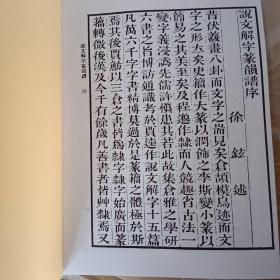 說文解字篆韻譜序
徐鉉述
昔伏羲畫八卦而文字之耑見矣倉頡模鳥迹而文
字之形立矣史籀作大篆以潤飾之李斯變小篆以
簡易之其美至矣及程邈作隸而人競趣省古法一
變字義浸譌先儒許慎患其若此故集倉雅之學研
六書之旨博訪通識考於賈逵作說文解字十五篇
凡萬六千字字書精博莫過於是篆籀之體極於斯
焉其後賈魴以三倉之書皆爲隸字隸字始廣而篆
籀轉微後漢及今千有餘歲凡善書者皆艸隸焉又
說文解字篆韻譜 序